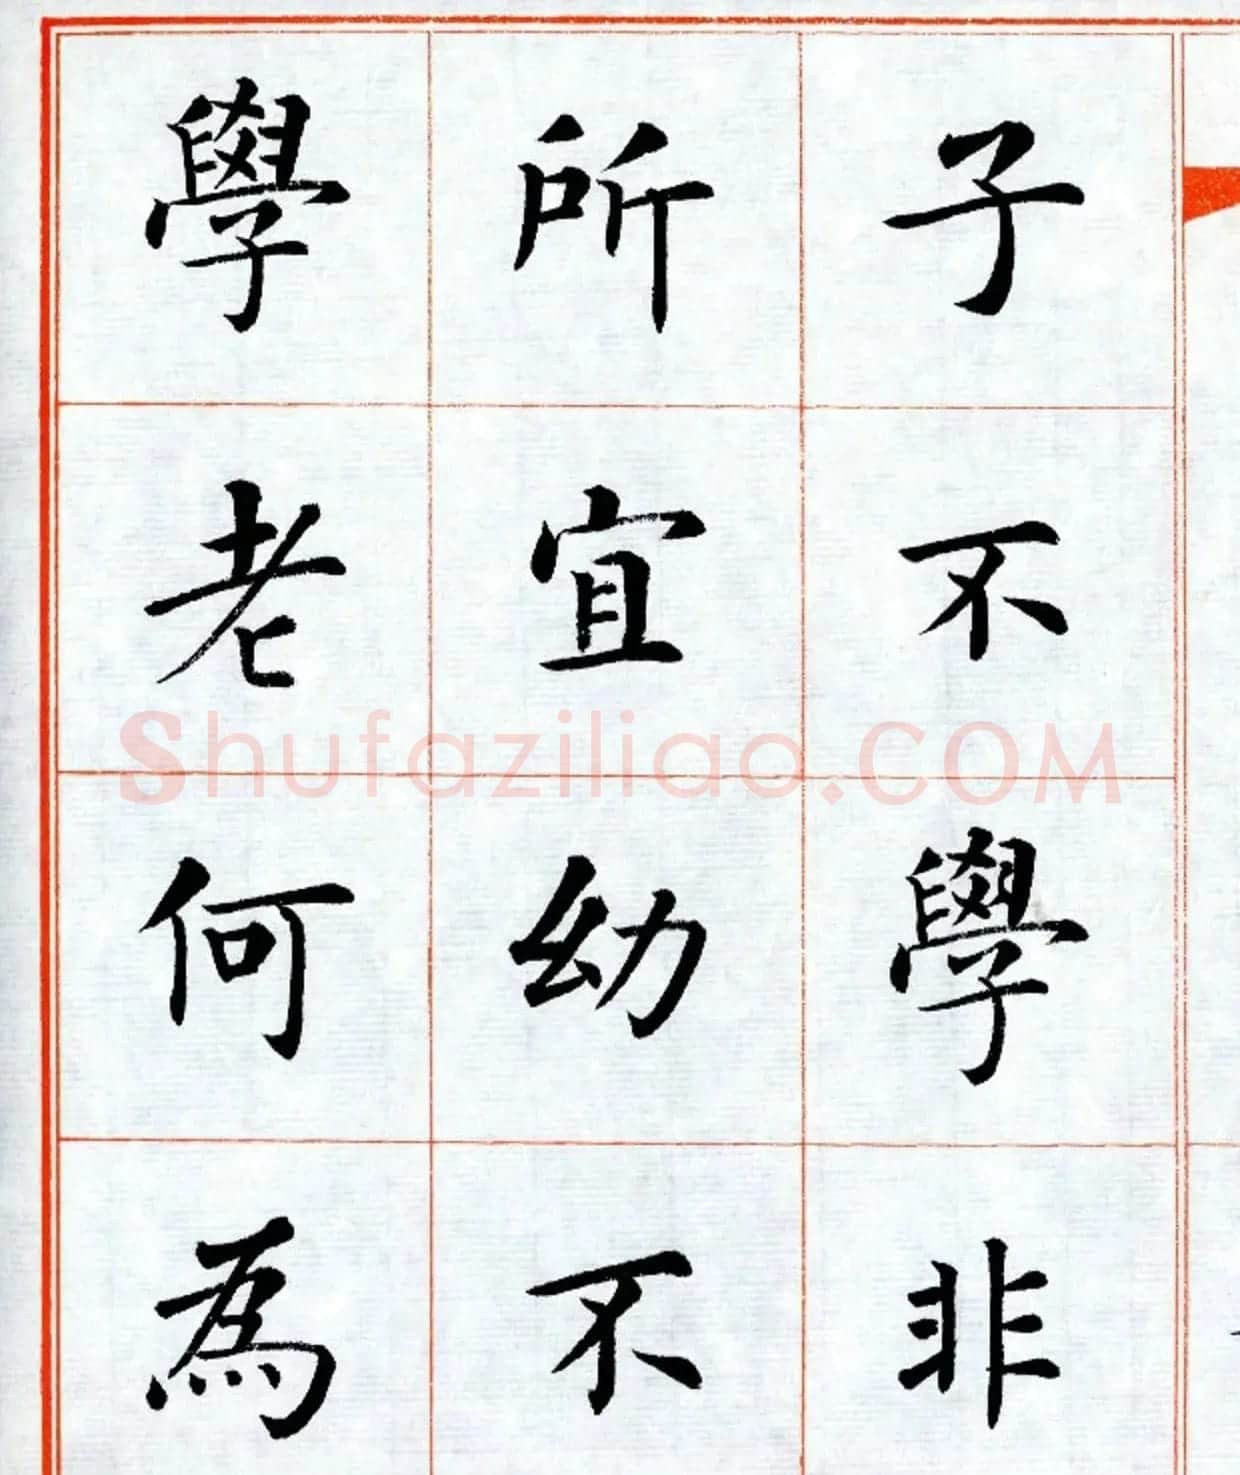 子不學非
所宜幼不
學老何為
Shufaziliao.COM